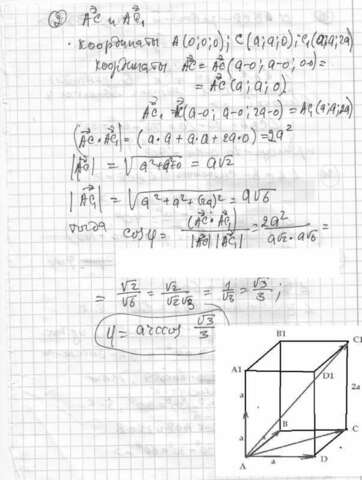 ② A⃗C и A⃗C₁
• координаты A(0;0;0); C(a;a;0); C₁(a;a;2a)
координаты A⃗C = A⃗C(a-0; a-0; 0-0) =
= A⃗C(a; a; 0)
AC₁ = A⃗C(a-0; a-0; 2a-0) = AC₁(a;a;2a)
(A⃗C · A⃗C₁) = (a·a + a·a + 2a·0) = 2a²
|A⃗C| = √(a²+a²+0) = a√2
|A⃗C₁| = √(a²+a²+(2a)²) = a√6
тогда cosφ = (A⃗C · A⃗C₁) / |A⃗C| |A⃗C₁| = 2a² / a√2·a√6 =
= √2/√6 = √2/√2√3 = 1/√3 = √3/3;
φ = arccos √3/3
B1 C1
A1 D1
a 2a
a B C
A a D